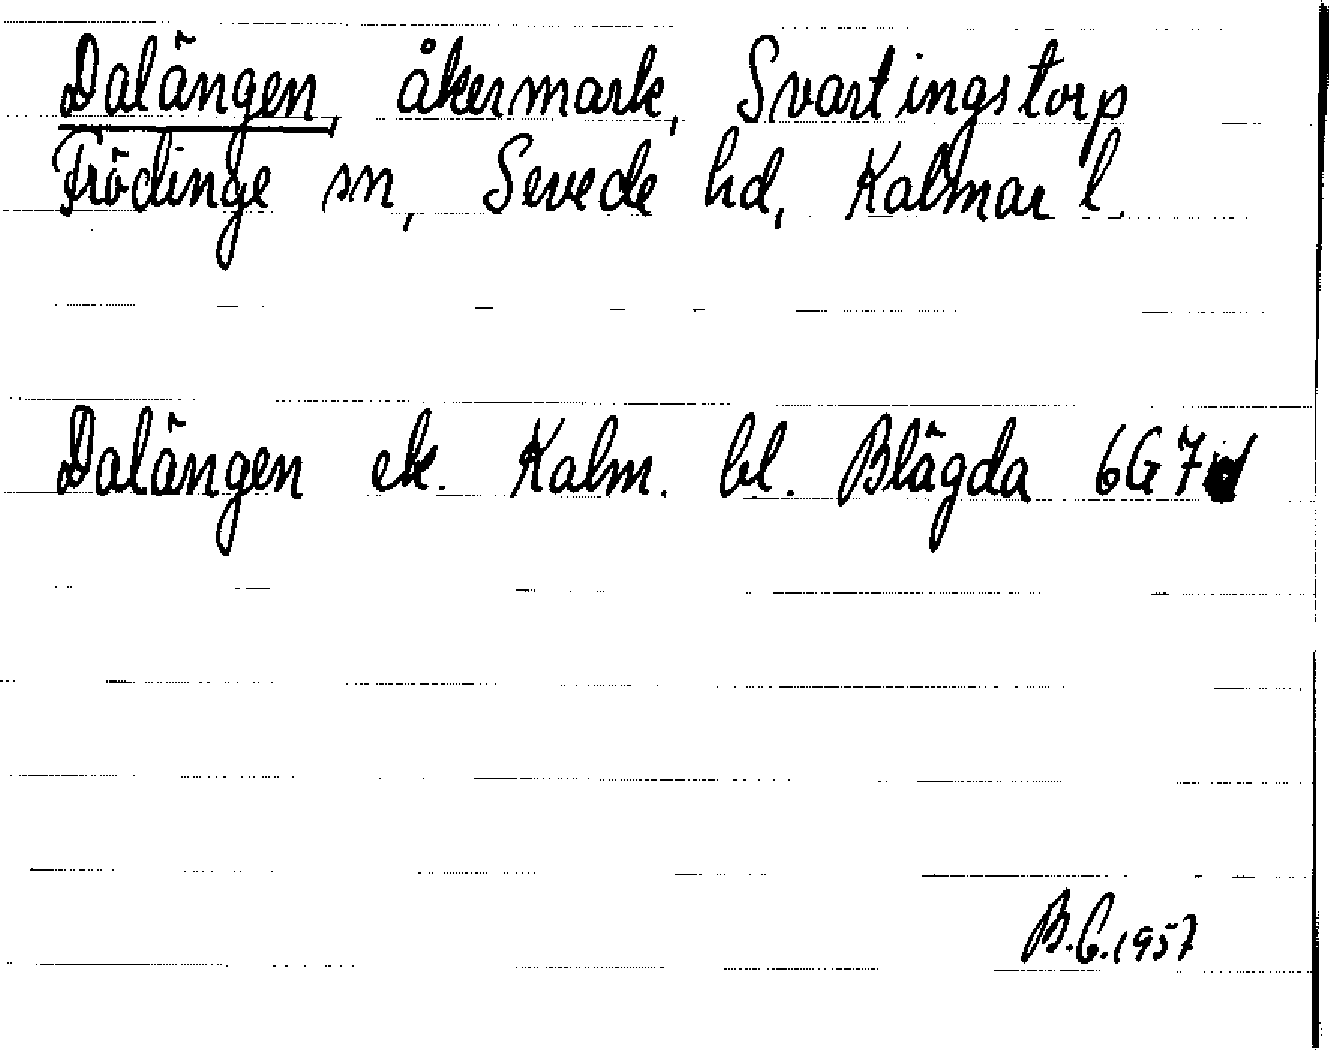 Dalängen, åkermark, Svartingstorp
Frödinge sn, Sevede hd, Kalmar l.
Dalängen ek. Kalm. bl. Blägda 6G7d
B.G.1957